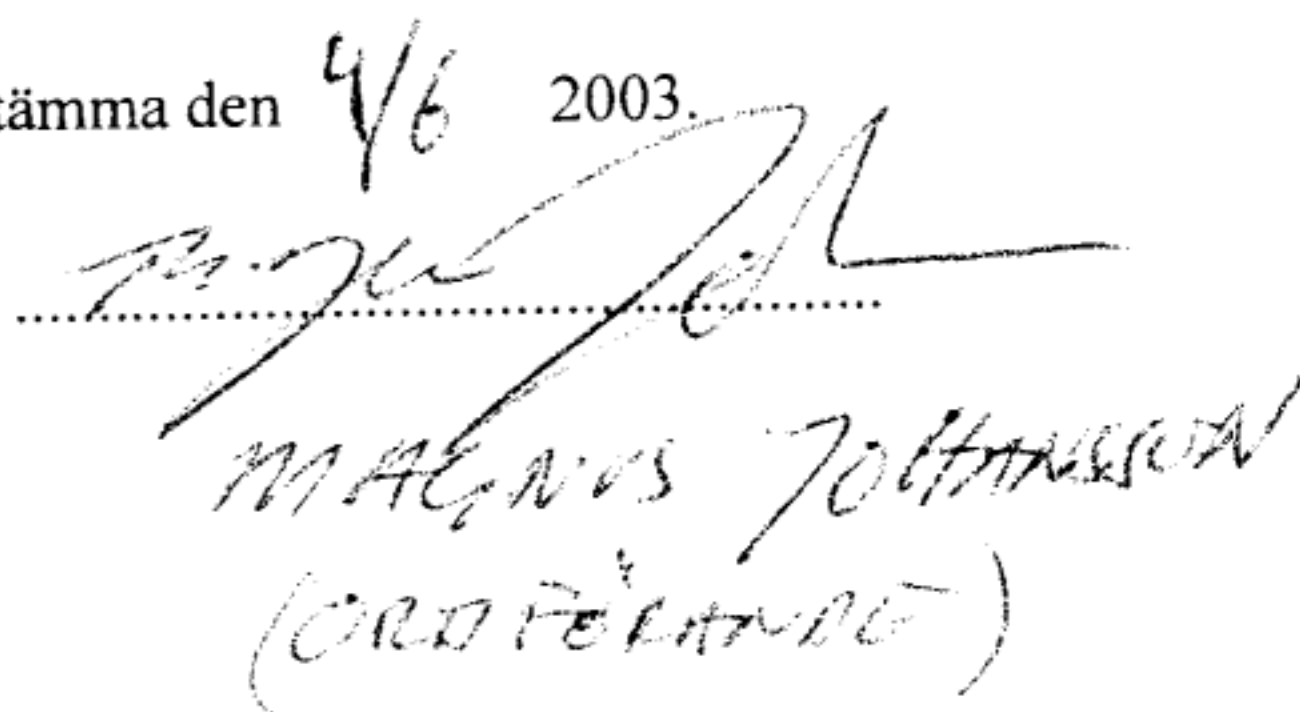 tämma den 4/6 2003.
MAGNUS JOHANSSON
(ORDFÖRANDE)